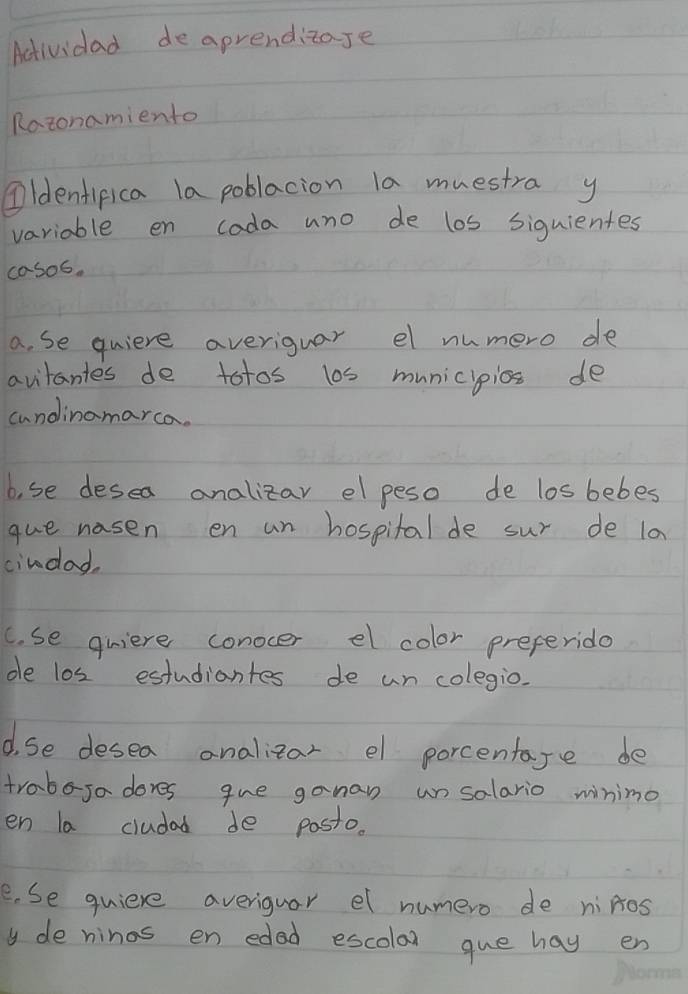 Actividad de aprendizaje
Razonamiento
① Identifica la poblacion la muestra y
variable en cada uno de los siguientes
casos.
a. Se quiere averiguar el numero de
avitantes de totos los municipios de
cundinamarca.
b. se desea analizar el peso de los bebes
que nasen en un hospital de sur de la
ciudad.
c. se quiere conocer el color preferido
de los estudiantes de un colegio.
d. se desea analizar el porcentaje de
trabajadores que ganan un salario minimo
en la ciudad de pasto.
e. Se quiere averiguar el numero de niños
y de ninas en edad escolar que hay en
Norma